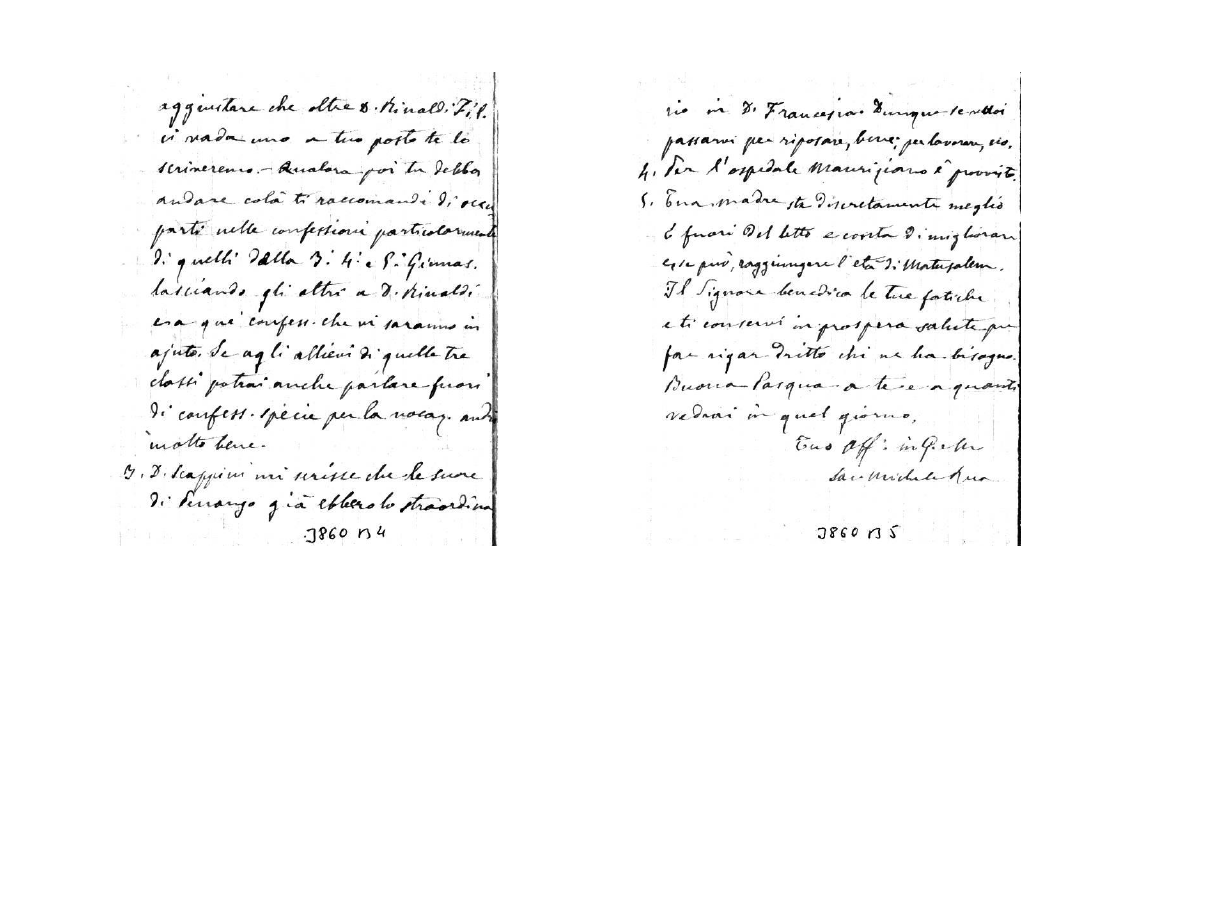 aggiustare che oltre D. Rinaldi Fil.
ci vada uno a tuo posto te lo
scriveremo. - Qualora poi tu debba
andare colà ti raccomandi di occu
parti nelle confessioni particolarmente
di quelli della 3ª 4ª e 5ª Ginnas.
lasciando gli altri a D. Rinaldi
e a que' confess. che vi saranno in
ajuto. Se agli allievi di quelle tre
classi potrai anche parlare fuori
di confess. specie per la vocaz. andrà
molto bene.
3. D. Scappini mi scrisse che le suore
di Penango già ebbero lo straordina
J860 B 4
rio in D. Francesia. Dunque se vuoi
passarvi per riposare, bene; per lavorare, no.
4. Per l'ospedale Mauriziano è provvisto.
5. Tua madre sta discretamente meglio
è fuori del letto e conta di migliorare
e se può, raggiungere l'età di Matusalem.
Il Signore benedica le tue fatiche
e ti conservi in prospera salute per
far rigar dritto chi ne ha bisogno.
Buona Pasqua a te e a quanti
vedrai in quel giorno.
Tuo Aff. in G. e M.
Sac. Michele Rua
J860 B 5